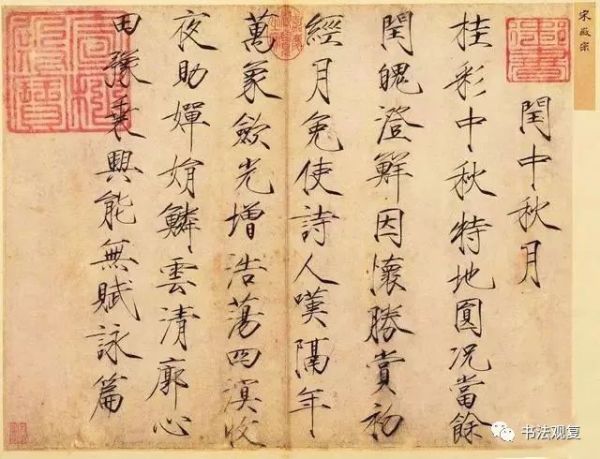 宋徽宗
閏中秋月
桂彩中秋特地圓況當餘
閏魄澄鮮因懷勝賞初
經月免使詩人嘆隔年
萬象歛光增浩蕩四溟收
夜助嬋娟鱗雲清廓心
田豫乘興能無賦詠篇
书法观复